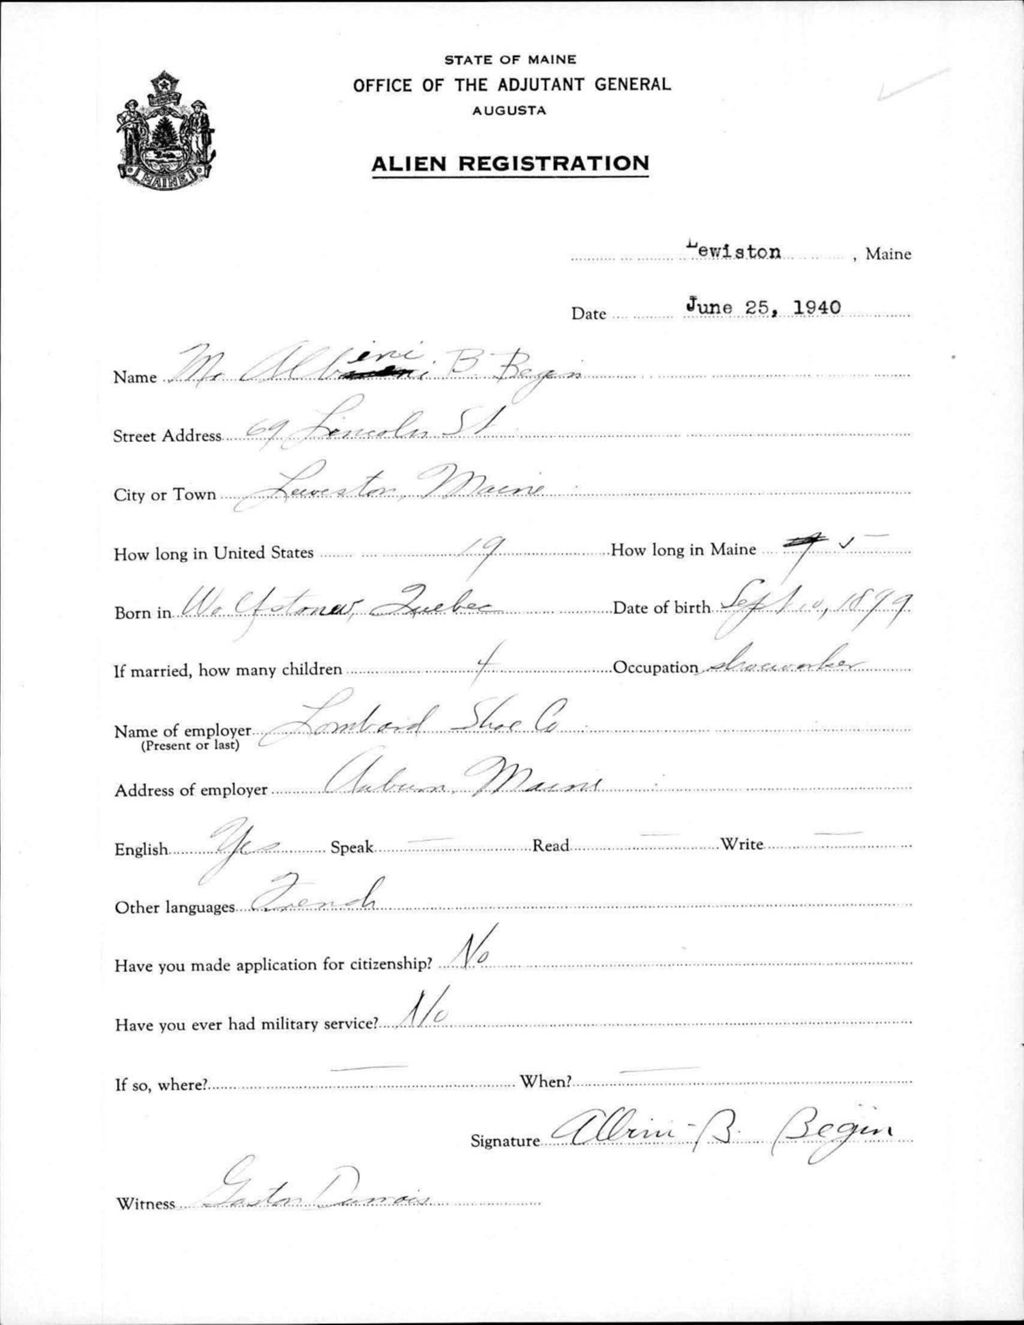 STATE OF MAINE
OFFICE OF THE ADJUTANT GENERAL
AUGUSTA
MAINE
ALIEN REGISTRATION
Lewiston, Maine
Date June 25, 1940
Name Mr Albeni B Begin
Street Address 69 Lincoln St
City or Town Lewiston, Maine
How long in United States 19 How long in Maine 5
Born in Wolfstown, Quebec Date of birth Sept 10, 1899
If married, how many children 4 Occupation shoeworker
Name of employer Lombard Shoe Co
(Present or last)
Address of employer Auburn, Maine
English Yes Speak — Read — Write —
Other languages French
Have you made application for citizenship? No
Have you ever had military service? No
If so, where? — When? —
Signature Albini B. Begin
Witness Gaston Dumais